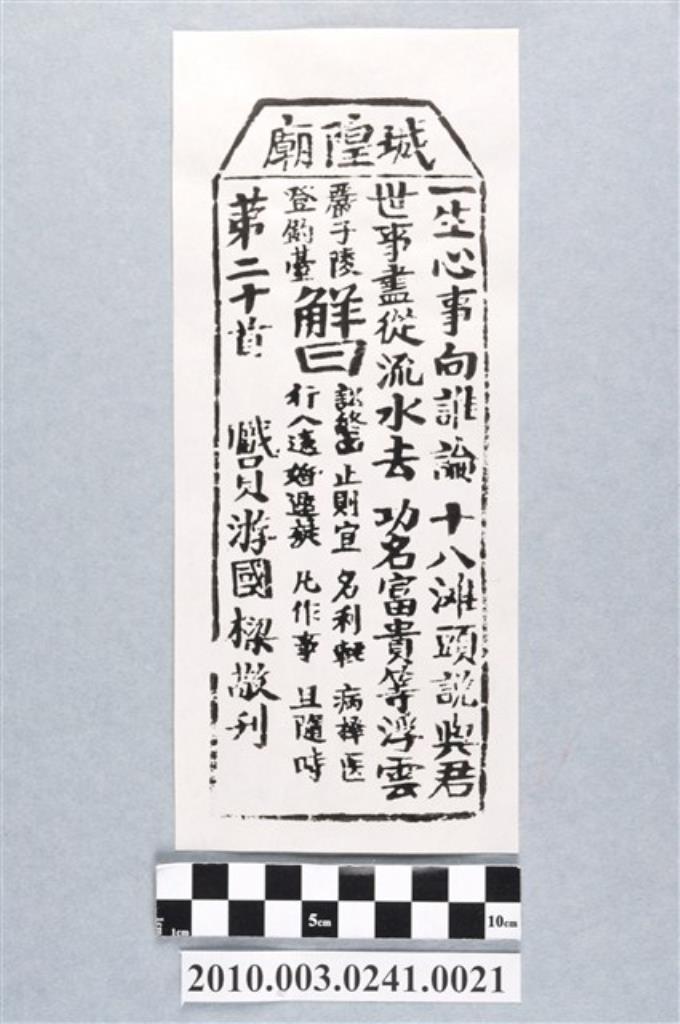 城隍廟
一生心事向誰論 十八滩頭說與君
世事盡從流水去 功名富貴等浮雲
嚴子陵
登釣臺
解曰
訟終凶 止則宜 名利輕 病擇医
行人遠 婚遲疑 凡作事 且隨時
第二十首 職員游國樑敬刊
1cm 5cm 10cm
2010.003.0241.0021